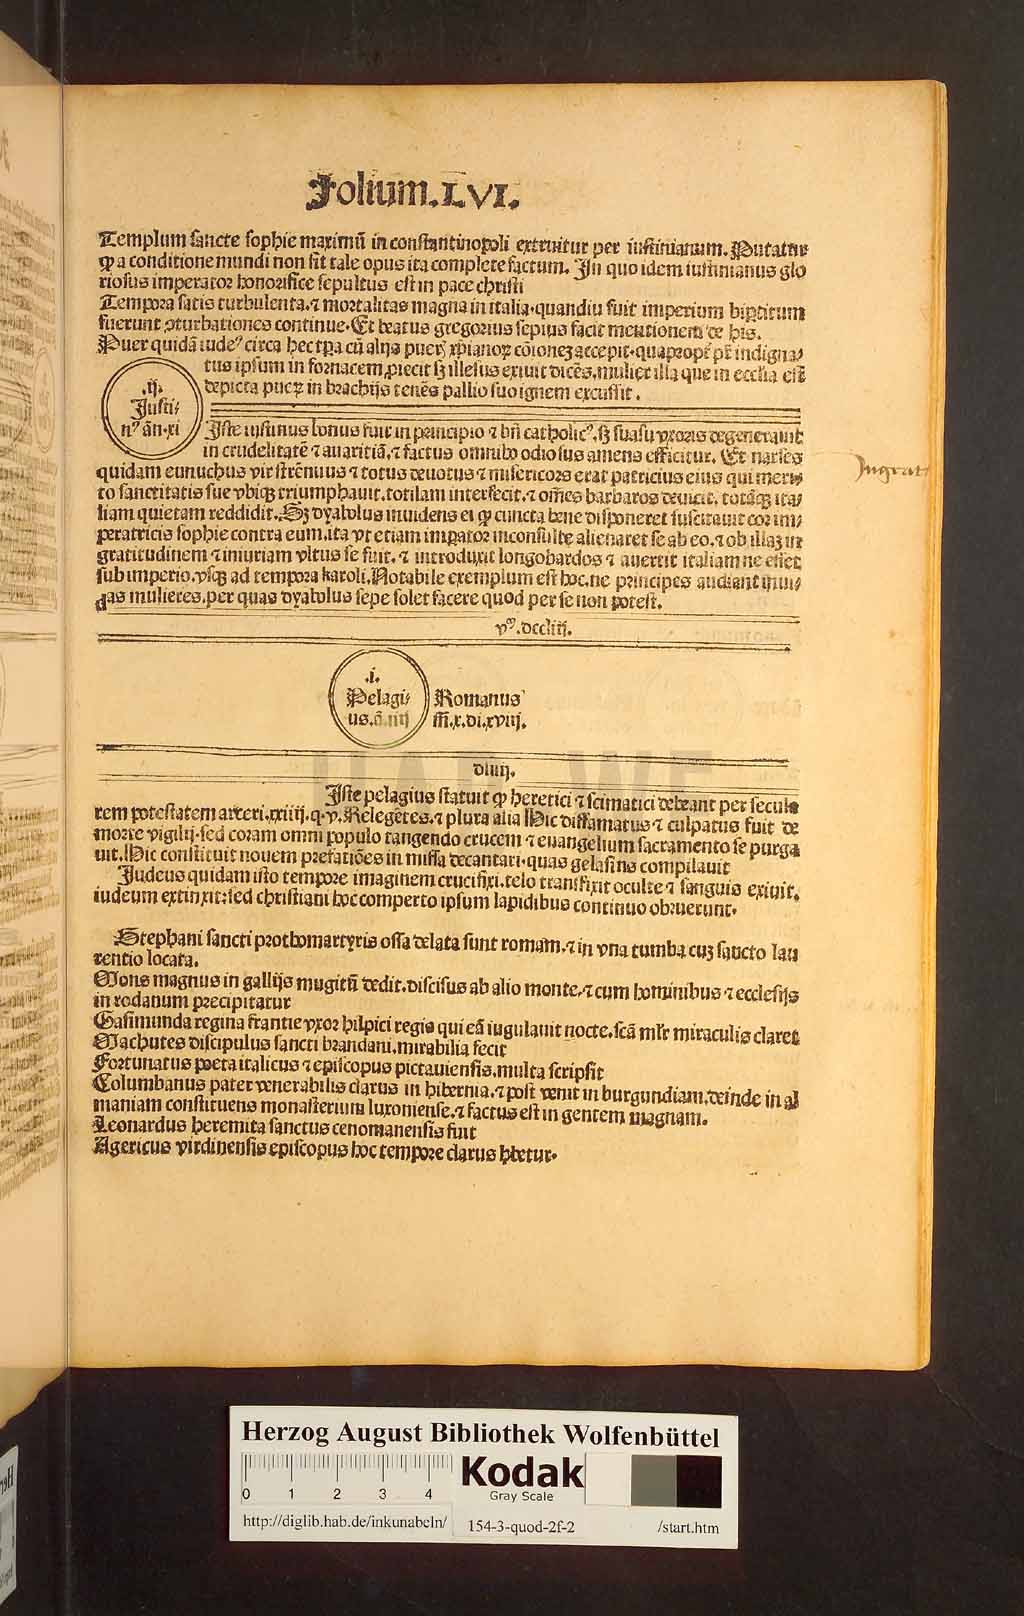 Folium.LVI.
Templum sancte sophie maximū in constantinopoli extruitur per iustinianum. Putatur
ꝙ a conditione mundi non sit tale opus ita complete factum. In quo idem iustinianus glo
riosus imperator honorifice sepultus est in pace christi
Tempora satis turbulenta.⁊ mortalitas magna in italia.quandiu fuit imperium bipartitum
fuerunt ꝓturbationes continue. Et beatus gregorius sepius facit mentionem de his.
Puer quidā iudeꝰ circa hec tꝑa cū alijs pueꝝ xp̄ianoꝝ cōionez accepit.quapropt̄ pr̄ indigna⸗
tus ipsum in fornacem ꝓiecit sꝫ illesus exiuit dicēs.mulier illa que in ecclīa est
depicta pueꝝ in brachijs tenēs pallio suo ignem excussit.
.ij.
Justi⸗
nꝰ ān.xi
Iste iustinus bonus fuit in principio ⁊ bn̄ catholicꝰ.sꝫ suasu vxoris degenerauit
in crudelitatē ⁊ auaritiā.⁊ factus omnibꝰ odiosus amens efficitur. Et narses
quidam eunuchus vir strēnuus ⁊ totus deuotus ⁊ misericors erat patricius eius qui meri⸗
to sanctitatis sue vbiqꝫ triumphauit.totilam interfecit.⁊ om̄es barbaros deuicit. totāqꝫ ita⸗
liam quietam reddidit. Sꝫ dyabolus inuidens ei ꝙ cuncta bene disponeret suscitauit cor im⸗
peratricis sophie contra eum.ita vt etiam impator inconsulte alienaret se ab eo.⁊ ob illaꝫ in
gratitudinem ⁊ iniuriam vltus se fuit. ⁊ introduxit longobardos ⁊ auertit italiam ne esset
sub imperio.vsqꝫ ad tempora karoli. Notabile exemplum est hoc.ne principes audiant inui⸗
das mulieres.per quas dyabolus sepe solet facere quod per se non potest.
Ingrat
.i.
Pelagi⸗
us.ā.iiij
Romanus
m̄.x.di.xviij.
Iste pelagius statuit ꝙ heretici ⁊ scimatici debeant per secula
rem potestatem arceri.xxiiij.q.v. Relegētes.⁊ plura alia Hic diffamatus ⁊ culpatus fuit de
morte vigilij.sed coram omni populo tangendo crucem ⁊ euangelium sacramento se purga
uit. Hic constituit nouem prefatiōes in missa decantari.quas gelasius compilauit
Judeus quidam isto tempore imaginem crucifixi.telo transfixit oculte ⁊ sanguis exiuit.
iudeum extinxit:sed christiani hoc comperto ipsum lapidibus continuo obruerunt.
Stephani sancti prothomartyris ossa delata sunt romam.⁊ in vna tumba cuꝫ sancto lau
rentio locata.
Mons magnus in gallijs mugitū dedit.discisus ab alio monte.⁊ cum hominibus ⁊ ecclesijs
in rodanum precipitatur
Gasimunda regina frantie vxor hilpici regis qui eā iugulauit nocte.scā mlr̄ miraculis claret
Machutes discipulus sancti brandani.mirabilia fecit
Fortunatus poeta italicus ⁊ episcopus pictauiensis.multa scripsit
Columbanus pater venerabilis clarus in hibernia.⁊ post venit in burgundiam.deinde in al
maniam constituens monasterium luxoniense.⁊ factus est in gentem magnam.
Leonardus heremita sanctus cenomanensis fuit
Agericus virdinensis episcopus hoc tempore clarus hbetur.
HAB WF
Herzog August Bibliothek Wolfenbüttel
0 1 2 3 4
Kodak
Gray Scale
http://diglib.hab.de/inkunabeln/ 154-3-quod-2f-2 /start.htm